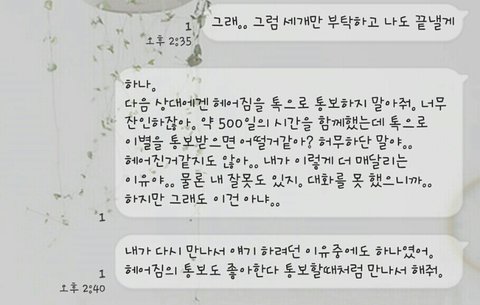 그래.. 그럼 세개만 부탁하고 나도 끝낼게
1
오후 2:35
하나.
다음 상대에겐 헤어짐을 톡으로 통보하지 말아줘. 너무
잔인하잖아. 약 500일의 시간을 함께했는데 톡으로
이별을 통보받으면 어떨거같아? 허무하단 말야..
헤어진거같지도 않아.. 내가 이렇게 더 매달리는
이유야.. 물론 내 잘못도 있지. 대화를 못 했으니까..
하지만 그래도 이건 아냐..
1
내가 다시 만나서 얘기 하려던 이유중에도 하나였어.
헤어짐의 통보도 좋아한다 통보할때처럼 만나서 해줘.
1
오후 2:40